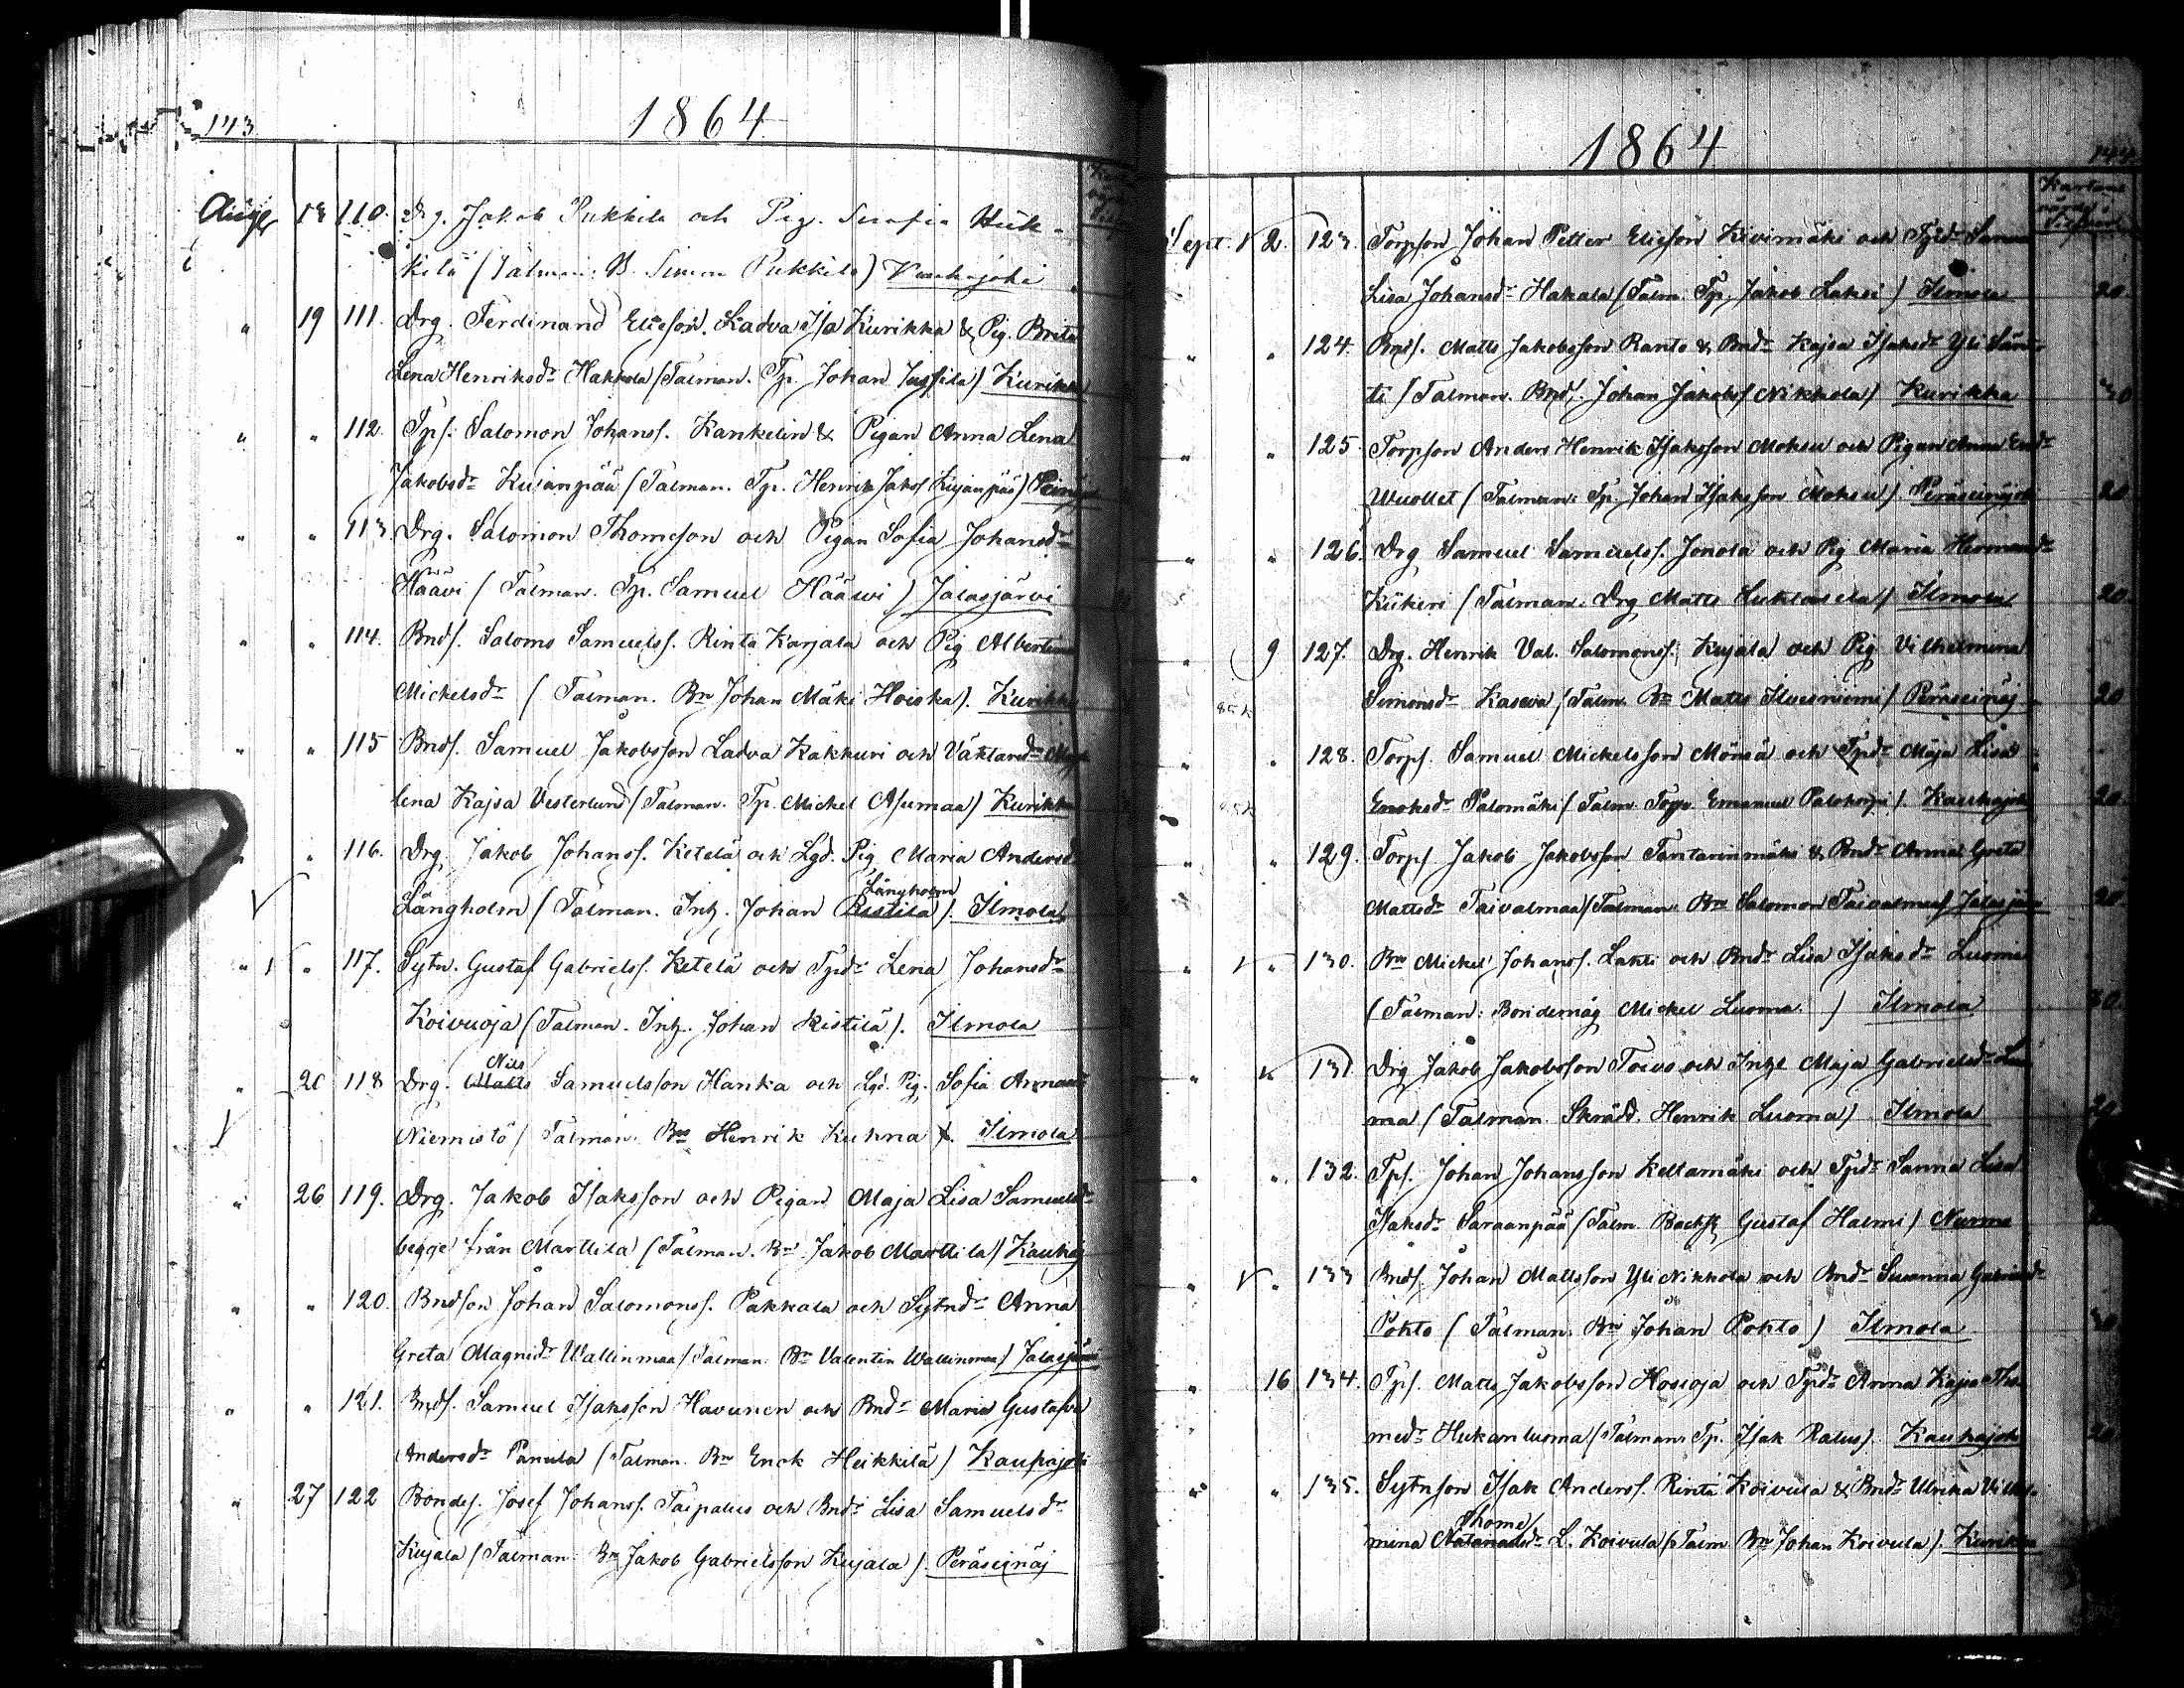 143
1864
Aug. 13 110. Drg. Jakob Pukkila och Pig. Serafia
kilä (Talman: B. Simon Pukkila) Kauhajoki
" 19 111. Drg. Ferdinand Eliesson Ladva Isa Kurikka & Pig. Brita
Lena Henriksdr Hakkola (Talman. Tp. Johan Jussila) Kurikka
" " 112. Tps. Salomon Johanss. Kankelin & Pigan Anna Lena
Jakobsdr Kujanpää (Talman. Tp. Henrik Jaks Kujanpää)
" " 113 Drg. Salomon Thomsson och Pigan Sofia Johansdr
Hääwi (Talman. Tp. Samuel Hääwi) Jalasjärvi
" " 114. Bnds. Salomo Samuelss. Rinta Karjala och Pig Albertina
Mickelsdr (Talman. Bn Johan Mäki Hoiska). Kurikka
" " 115 Bnds. Samuel Jakobsson Ladva Kakkuri och Väktaredr
lena Kajsa Vesterlund (Talman. Tp. Mickel Asumaa) Kurikka
" " 116. Drg. Jakob Johanss. Ketelä och Lgd. Pig Maria Andersdr
Långholm
Långholm (Talman. Inh. Johan Ristilä). Ilmola
" " 117. Sytn. Gustaf Gabrielss. Ketelä och Tpdr Lena Johansdr
Koivuoja (Talman. Inh. Johan Ristilä). Ilmola
Nils
" 20 118 Drg. Matts Samuelsson Hanka och Lgd. Pig. Sofia
Niemistö (Talman: Bn Henrik Kuhna). Ilmola
" 26 119. Drg. Jakob Isaksson och Pigan Maja Lisa Samuelsdr
begge från Marttila (Talman. Bn Jakob Marttila) Kauhaj
" " 120. Bndson Johan Salomonss. Pakkala och Sytndr Anna
Greta Magnidr Wallinmaa (Talman: Bn Valentin Wallinmaa) Jalasjärvi
" " 121. Bnds. Samuel Isaksson Havunen och Bndr Maria Gustafva
Andersdr Panula (Talman. Bn Enok Heikkilä) Kauhajoki
" 27 122 Bondes. Josef Johanss. Taipalus och Bndr Lisa Samuelsdr
Kujala (Talman: Bn Jakob Gabrielsson Kujala). Peräseinäj
1864
144
Sept. 2. 123. Torpson Johan Petter Eliesson Kivimäki och Tpdr Sanna
Lisa Johansdr Hakala (Talm. Tp. Jakob Laksi) Ilmola 20
" " 124. Bnds. Matts Jakobsson Ranto & Bndr Kajsa Isaksdr Yli Sän
ti (Talman. Bnds. Johan Jakobs Nikkola) Kurikka 30
" " 125. Torpson Anders Henrik Isaksson Moksu och Pigan Anna
Wuollet (Talman: Tp. Johan Isaksson Moksu) Peräseinäjok 20
" " 126. Drg Samuel Samuelss. Jonola och Pig Maria Hermansdr
Kiikeri (Talman: Drg Matts Luklasela) Ilmola 20
" 9 127. Drg. Henrik Val. Salomonss. Kujala och Pig Vilhelmina
Simonsdr Kaseva (Talm. Bn Matts Iluesniemi) Peräseinäj 20
" " 128. Torps. Samuel Mickelsson Mönsä och Tpdr Maja Lisa
Enoksdr Palomäki (Talm. Torp. Emanuel Palokorpi). Kauhajoki 20
" " 129. Torps Jakob Jakobsson Tantarinmäki & Bndr Anna Greta
Mattsdr Taivalmaa (Talman: Bn Salomon Taivalmaa) Jalasjärvi 20
" " 130. Bn Mickel Johanss. Lahti och Bndr Lisa Isaksdr Luoma
(Talman: Bondemåg Mickel Luoma) Ilmola 30
" " 131. Drg Jakob Jakobsson Toivo och Inhe Maja Gabrielsdr Luo
ma (Talman. Skrädd. Henrik Luoma) Ilmola 20
" " 132. Tps. Johan Johansson Keltamäki och Tpdr Sanna Lisa
Isaksdr Saraanpää (Talm. Backsk Gustaf Halmi) Nurmo
" " 133 Bnds. Johan Mattsson Yli Nikkola och Bndr Susanna Gabrielsdr
Pohto (Talman. Bn Johan Pohto) Ilmola 30
" 16 134. Tps. Matts Jakobsson Hosioja och Tpdr Anna Kajsa Tho
medr Hukanluoma (Talman. Tp. Isak Ralus). Kauhajoki 20
" " 135. Sytnson Isak Anderss. Rinta Koivula & Bndr Ulrika Vilhel
Thome
mina L. Koivula (Talm Bn Johan Koivula). Kurikka